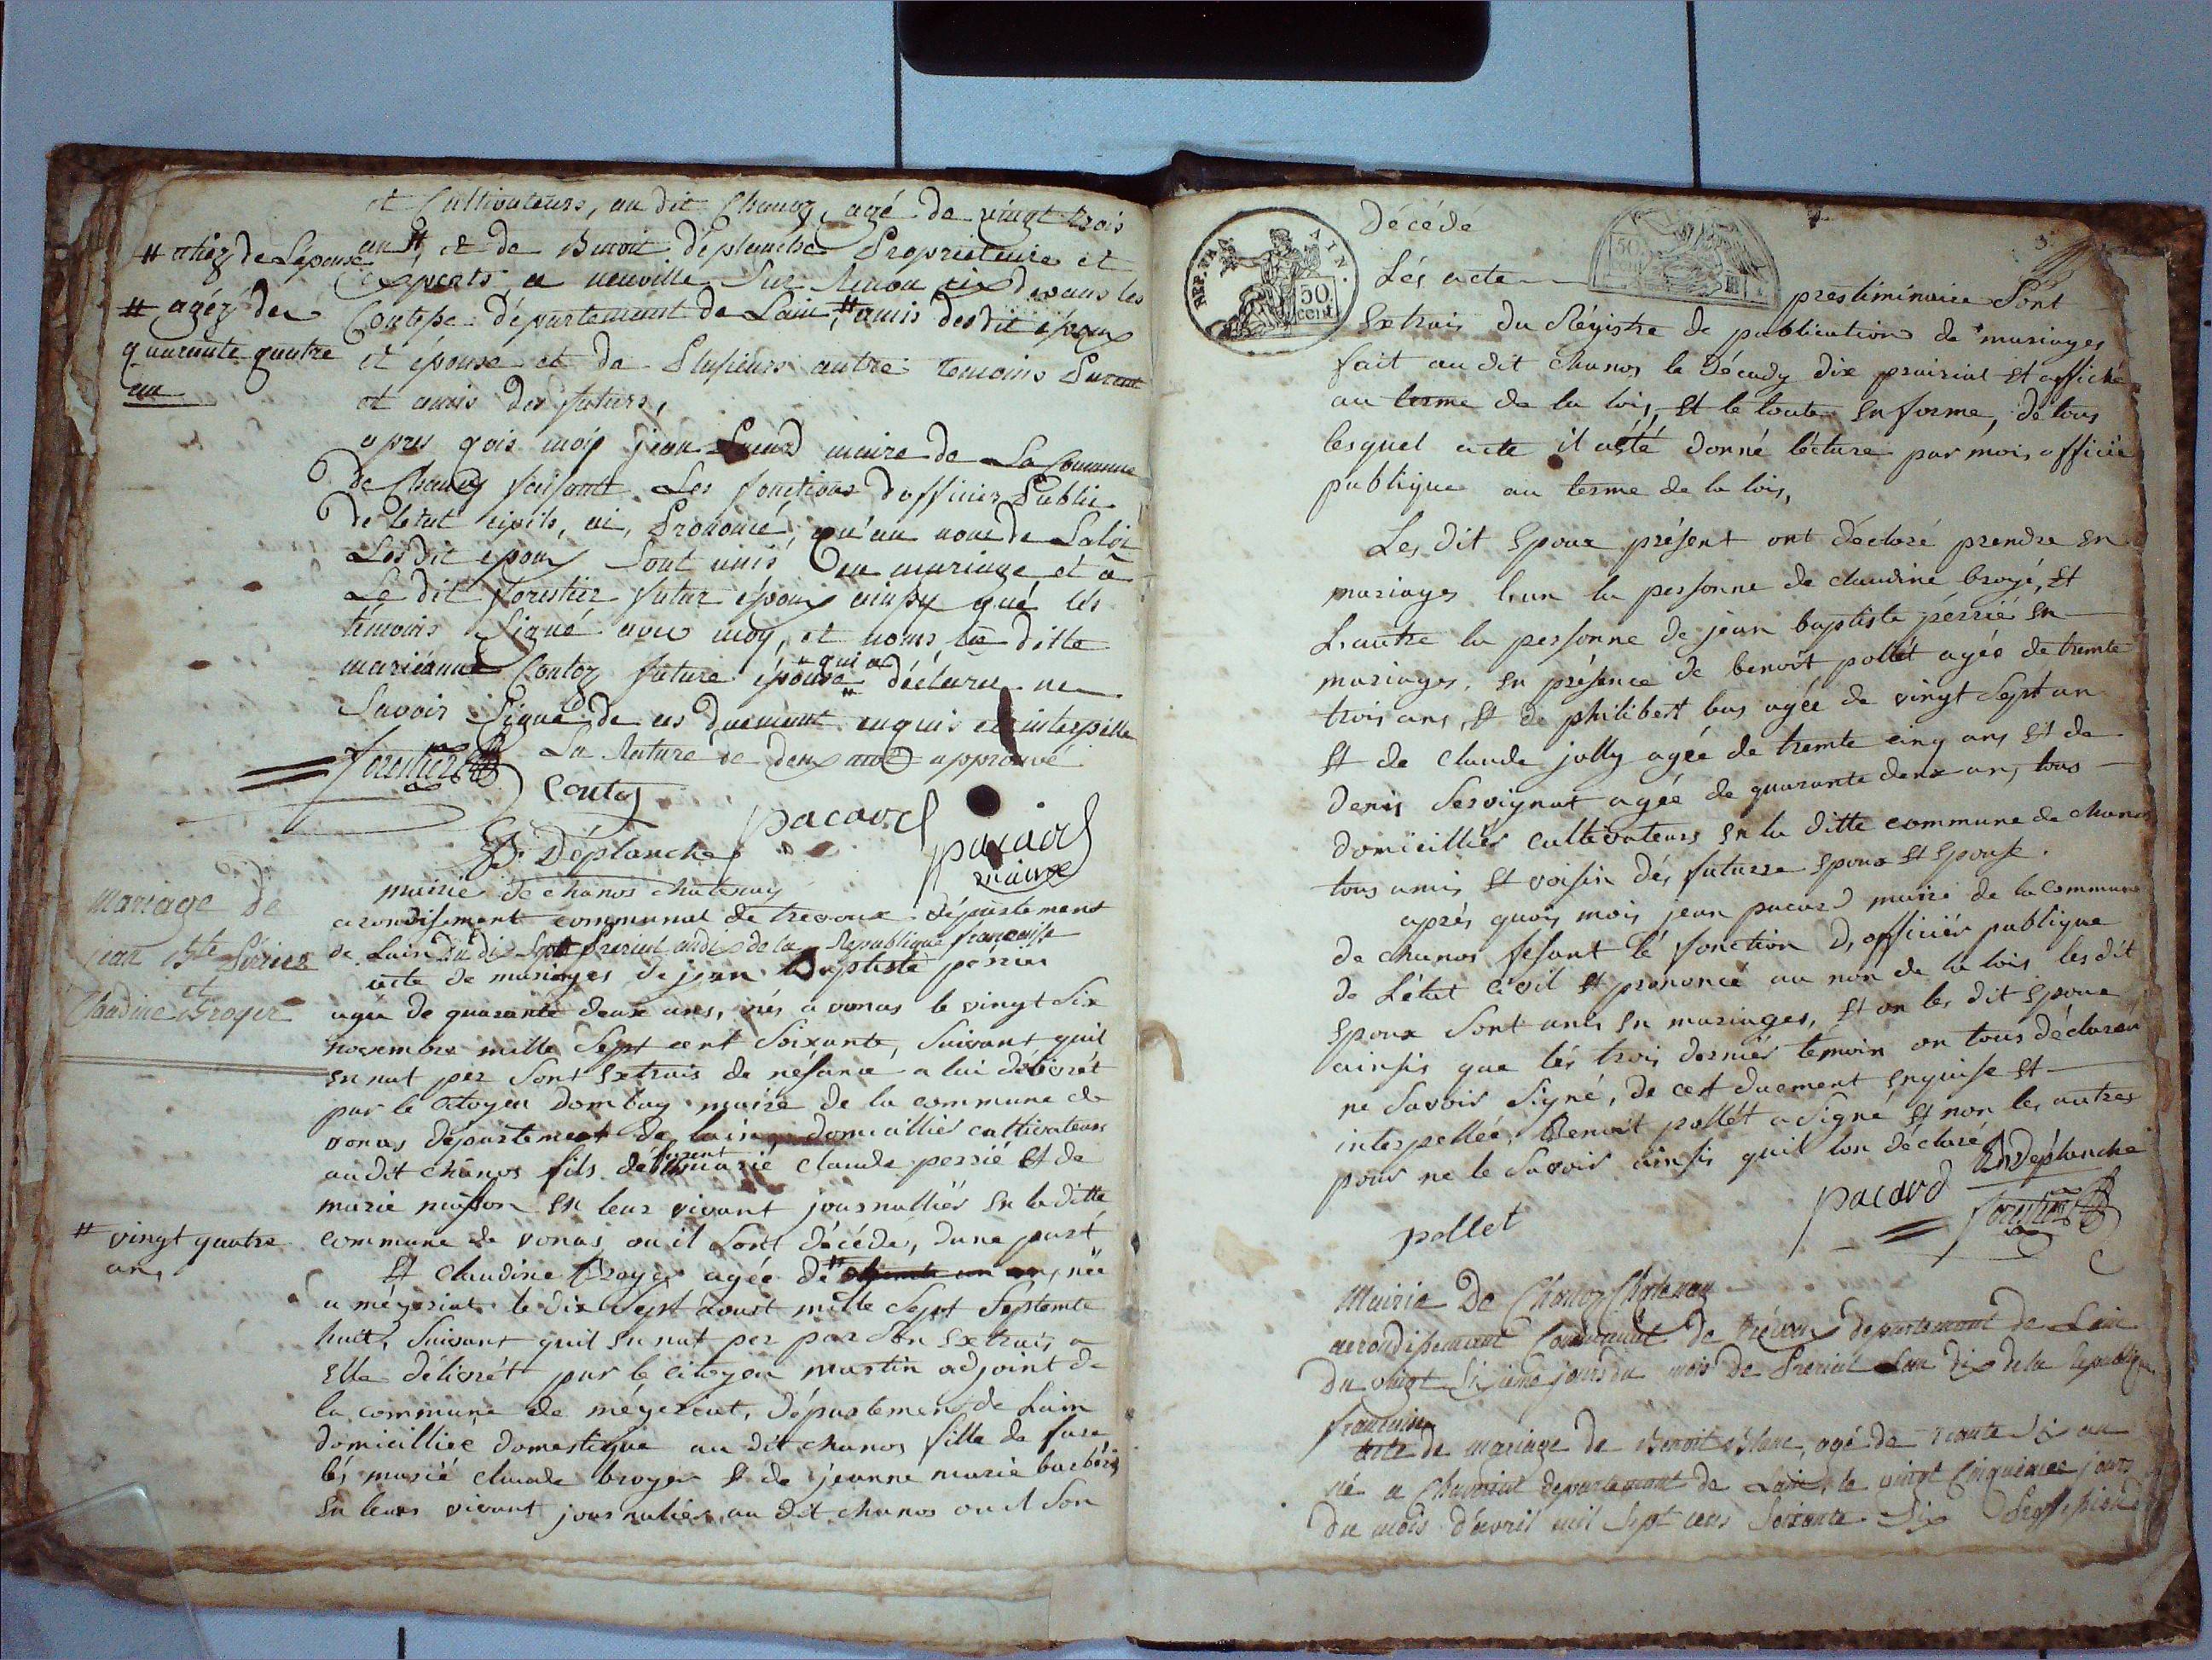 et Cultivateurs, au dit Chanoz, agé de vingt trois
an # et de Benoit déplanche Proprietaire et
# chez de Lepouse
Experts a neuville Sur Renon six devant les
# agéz de
quarante quatre
an
Contesse département de Lain, # amis des dit époux
et épouse et de Plusieurs autre temoins Parent
et amis des futurs,
apres qois moy jean Pacard maire de La Commune
De Chanoz faisant Les fonctions d'officier Public
de letat civile, ai, Prononcé, qu'au nom de Laloi
Les dit epoux Sont unis en mariage et a
Le dit forestier futur époux ainsy qué lés
témoins Signé avec moy, et nous, la ditte
marieanne Contoz future épouse " qui a déclaré ne
Savoir Signé de ces duement enquis et interpellé
La Rature de deux mot approuvé
forestier
Contoz
B. Déplanche
pacard
pacard
maire
mariage de
jean Bte Périer
et
Claudine Broyer
mairie de chanos chatenay
arondisement communal de trevoux département
de Lain du dix Sept prerial andix de la Republique francaisse
acte de mariages de jean Baptiste perrier
agée de quarante deux ans, nés a vonas le vingt Six
novembre mille Sept cent Soixante, Suivant quil
en nut per Sont Extrais de nésance a lui délivrét
par le Citoyen Dombay maire de la commune de
vonas département de lain domicilliér cultivateur
audit chanos fils de furent marié claude perrié Et de
marie maison en leur vivant journalliér en la ditte
commune de vonas ou il Sont décédé, dune part
# vingt quatre
ans
Et claudine Broyer agée de # née
a mézeriat le dix Sept aoust mille Sept Séptente
huit, Suivant quil en nut per par Son Extrais a
Elle délivrét par le citoyen martin adjoint de
la commune de mézeriat, département de Lain
domicilliée domestique au dit chanos fille de fure
lés marié claude broyer Et de jeanne marie barbérin
En leurs vivant journaliér au dit chanos ou il Son
Décéde
DEP. DE L'AIN.
50 cent.
50 cent
Lés acte presliminaire Sont
Extrais du Régistre de publication de mariages
fait au dit chanos le Décady dix prairial Et affiché
au terme de la lois, Et le toute En forme, de tous
lesquel acte il a été donné lécture par mois officié
publique au terme de la lois,
Les dit Epoux présent ont déclaré prendre En
mariages lun la personne de claudine broyé, Et
Lautre la personne de jean baptiste périé En
mariages, En présence de benoit pollét agée de trente
trois ans, Et de philibert bas agée de vingt Sept an
Et de claude jolly agée de trente cinq ans Et de
denis Servignat agée de quarante deux an, tous
domicilliér cultivateurs En la ditte commune de chanos
tous amis Et voisin dés futurre Epoux Et Epouse.
aprés quois mois jean pacard maire de la commune
de chanos fesant lé fonction D'officiér publique
de L'état civil Et prononcé au non de la lois les dit
Epoux Sont unis En mariages, Et on les dit Epoux
ainsis que lés trois derniér témoin on tous déclarér
ne Savoir Signé, de cest duement Enquise Et
interpellée, Benoit pollét a Signé Et non les autres
pour ne le Savoir ainsis quil lon déclaré
pollet
pacard
B. Déplanche
forestier
Mairie De Chanoz Chatenay
arrondissement Communal de trévoux département de Lain
Du vingt Sixieme jours du mois de Prerial Lan dix de la République
francaise
acte de mariage de Benoit Blanc, agé de trante Six an
né a Chaveriat département de Lain, le vingt Cinquieme jours
du mois d'avril mil Sept cens Soixante Six